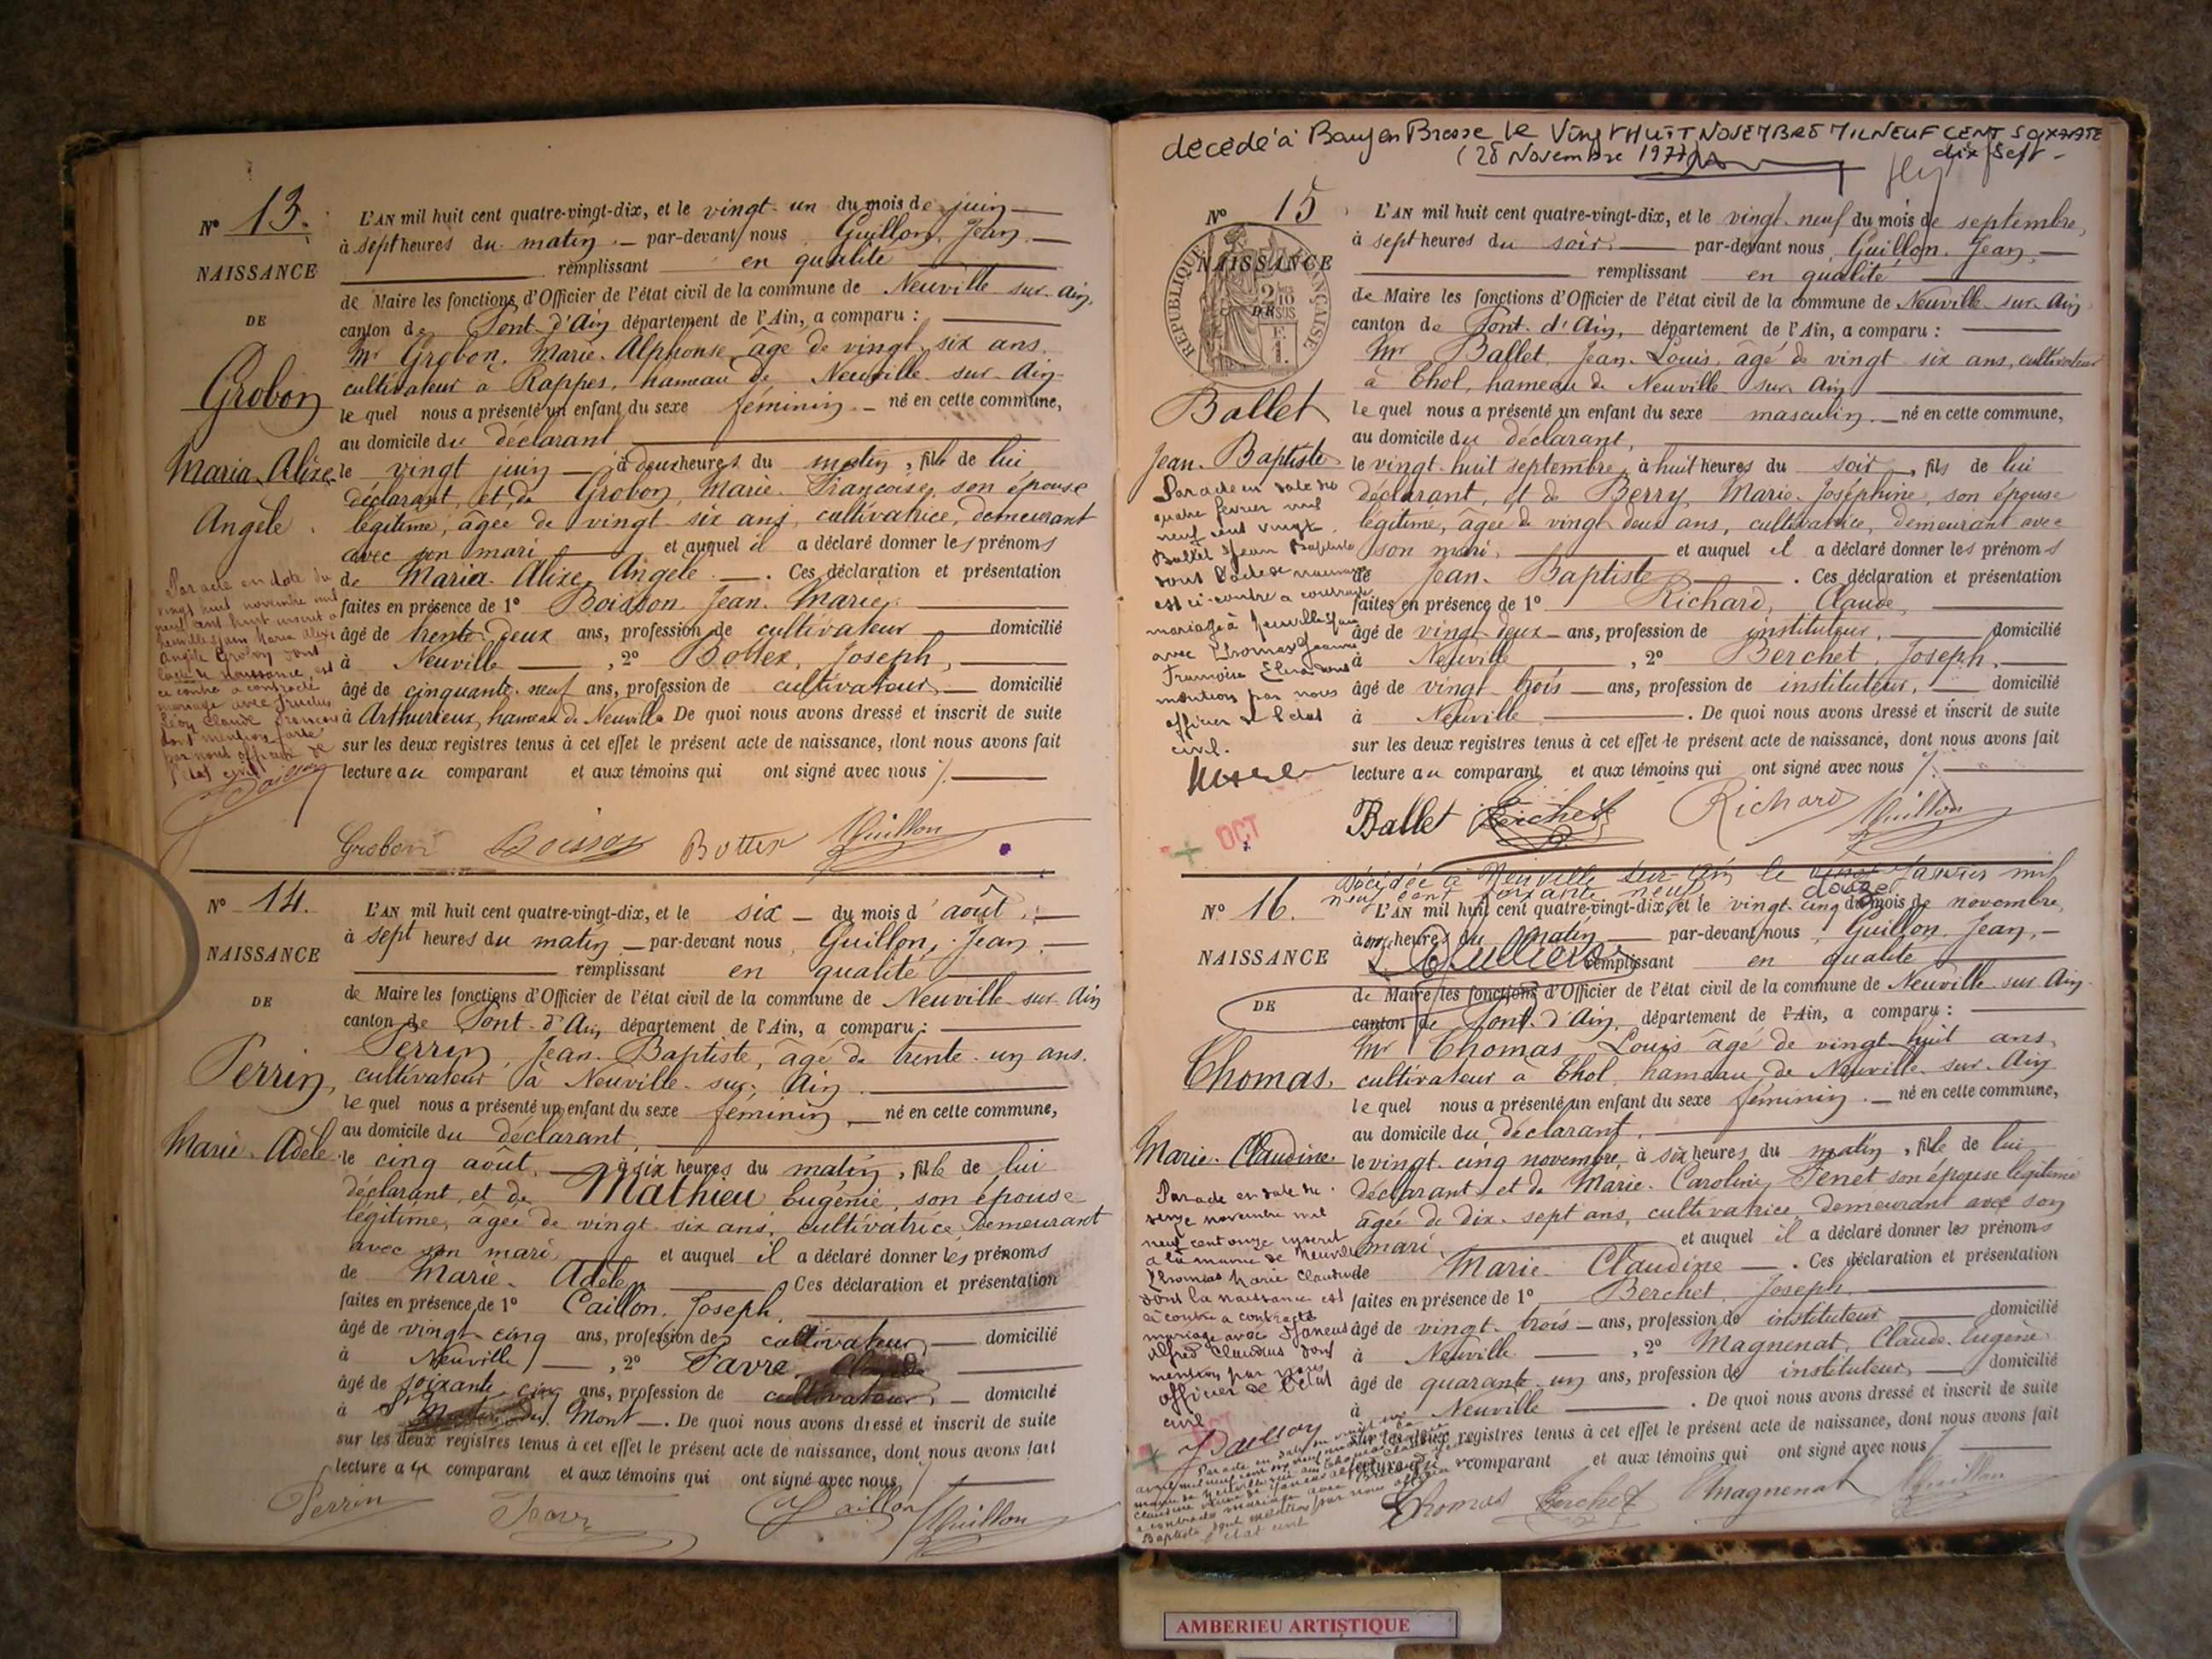 Nº 13.
NAISSANCE
DE
Grobon
Maria Alixe
Angèle.
L'AN mil huit cent quatre-vingt-dix, et le vingt-un du mois de juin
à sept heures du matin par-devant nous Guillon, Jean
remplissant en qualité
de Maire les fonctions d'Officier de l'état civil de la commune de Neuville-sur-Ain,
canton de Pont-d'Ain département de l'Ain, a comparu :
Mr Grobon, Marie-Alphonse, âgé de vingt-six ans,
cultivateur à Rappes, hameau de Neuville-sur-Ain
lequel nous a présenté un enfant du sexe féminin né en cette commune,
au domicile du déclarant
le vingt juin à deux heures du matin, fille de lui
déclarant, et de Grobon, Marie-Françoise, son épouse
légitime, âgée de vingt-six ans, cultivatrice, demeurant
avec son mari et auquel il a déclaré donner les prénoms
de Maria-Alixe, Angèle. Ces déclaration et présentation
faites en présence de 1º Boisson, Jean-Marie,
âgé de trente-deux ans, profession de cultivateur domicilié
à Neuville, 2º Bottex, Joseph,
âgé de cinquante-neuf ans, profession de cultivateur domicilié
à Arthurieux, hameau de Neuville De quoi nous avons dressé et inscrit de suite
sur les deux registres tenus à cet effet le présent acte de naissance, dont nous avons fait
lecture au comparant et aux témoins qui ont signé avec nous
Par acte en date du
vingt huit novembre mil
neuf cent huit inscrit à
Neuville s/ain Maria Alixe
Angèle Grobon dont
l'acte de naissance est
ci contre a contracté
mariage avec
Léon Claude François
dont mention faite
par nous officier de
l'état civil
Grobon Boisson Bottex Guillon
Nº 14.
NAISSANCE
DE
Perrin,
Marie-Adèle
L'AN mil huit cent quatre-vingt-dix, et le six du mois d'août
à sept heures du matin par-devant nous Guillon, Jean
remplissant en qualité
de Maire les fonctions d'Officier de l'état civil de la commune de Neuville-sur-Ain
canton de Pont-d'Ain, département de l'Ain, a comparu :
Perrin, Jean-Baptiste, âgé de trente-un ans.
cultivateur à Neuville-sur-Ain
lequel nous a présenté un enfant du sexe féminin, né en cette commune,
au domicile du déclarant,
le cinq août, à six heures du matin, fille de lui
déclarant, et de Mathieu Eugénie, son épouse
légitime, âgée de vingt-six ans, cultivatrice, demeurant
avec son mari, et auquel il a déclaré donner les prénoms
de Marie-Adèle, Ces déclaration et présentation
faites en présence de 1º Caillon, Joseph,
âgé de vingt-cinq ans, profession de cultivateur, domicilié
à Neuville, 2º Favre,
âgé de soixante-cinq ans, profession de cultivateur, domicilié
à Mont. De quoi nous avons dressé et inscrit de suite
sur les deux registres tenus à cet effet le présent acte de naissance, dont nous avons fait
lecture au comparant et aux témoins qui ont signé avec nous
Perrin Favre J Caillon Guillon
décédé à Bourg en Bresse le VINGT HUIT NOVEMBRE MIL NEUF CENT SOIXANTE
dix sept
(28 Novembre 1977)
Nº 15
NAISSANCE
DE
RÉPUBLIQUE FRANÇAISE
Ballet
Jean-Baptiste
L'AN mil huit cent quatre-vingt-dix, et le vingt-neuf du mois de septembre,
à sept heures du soir par-devant nous, Guillon, Jean,
remplissant en qualité
de Maire les fonctions d'Officier de l'état civil de la commune de Neuville-sur-Ain,
canton de Pont-d'Ain, département de l'Ain, a comparu :
Mr Ballet, Jean-Louis, âgé de vingt-six ans, cultivateur
à Thol, hameau de Neuville-sur-Ain
lequel nous a présenté un enfant du sexe masculin né en cette commune,
au domicile du déclarant,
le vingt-huit septembre, à huit heures du soir, fils de lui
déclarant, et de Berry, Marie-Joséphine, son épouse
légitime, âgée de vingt-deux ans, cultivatrice, demeurant avec
son mari, et auquel il a déclaré donner les prénoms
de Jean-Baptiste. Ces déclaration et présentation
faites en présence de 1º Richard, Claude,
âgé de vingt-deux ans, profession de instituteur, domicilié
à Neuville, 2º Berchet, Joseph,
âgé de vingt-trois ans, profession de instituteur, domicilié
à Neuville. De quoi nous avons dressé et inscrit de suite
sur les deux registres tenus à cet effet le présent acte de naissance, dont nous avons fait
lecture au comparant et aux témoins qui ont signé avec nous
Par acte en date du
quatre février mil
neuf cent vingt
Ballet Jean Baptiste
dont l'acte de naissance
est ci-contre a contracté
mariage à Neuville s/ain
avec Thomas Jeanne
Françoise dont
mention par nous
officier de l'état
civil.
OCT
Ballet Berchet Richard Guillon
Décédée à Neuville-sur-Ain le vingt douze Janvier mil
neuf cent soixante neuf
Nº 16.
NAISSANCE
DE
Thomas,
Marie-Claudine
L'AN mil huit cent quatre-vingt-dix, et le vingt-cinq du mois de novembre,
à onze heures du matin par-devant nous Guillon, Jean,
remplissant en qualité
de Maire les fonctions d'Officier de l'état civil de la commune de Neuville-sur-Ain.
canton de Pont-d'Ain, département de l'Ain, a comparu :
Mr Thomas Louis âgé de vingt-huit ans,
cultivateur à Thol, hameau de Neuville-sur-Ain
lequel nous a présenté un enfant du sexe féminin. né en cette commune,
au domicile du déclarant,
le vingt-cinq novembre, à six heures du matin, fille de lui
déclarant, et de Marie-Caroline Tenet son épouse légitime
âgée de dix-sept ans, cultivatrice, demeurant avec son
mari, et auquel il a déclaré donner les prénoms
de Marie-Claudine. Ces déclaration et présentation
faites en présence de 1º Berchet, Joseph.
âgé de vingt-trois ans, profession de instituteur domicilié
à Neuville, 2º Magnenat, Claude-Eugène
âgé de quarante-un ans, profession de instituteur, domicilié
à Neuville. De quoi nous avons dressé et inscrit de suite
sur les deux registres tenus à cet effet le présent acte de naissance, dont nous avons fait
lecture au comparant et aux témoins qui ont signé avec nous
Par acte en date du
seize novembre mil
neuf cent onze inscrit
à la mairie de Neuville
Thomas Marie Claudine
dont la naissance est
ci contre a contracté
mariage avec Janeus
Alfred Claudius dont
mention par nous
officier de l'état
civil
Thomas Berchet Magnenat Guillon
AMBERIEU ARTISTIQUE